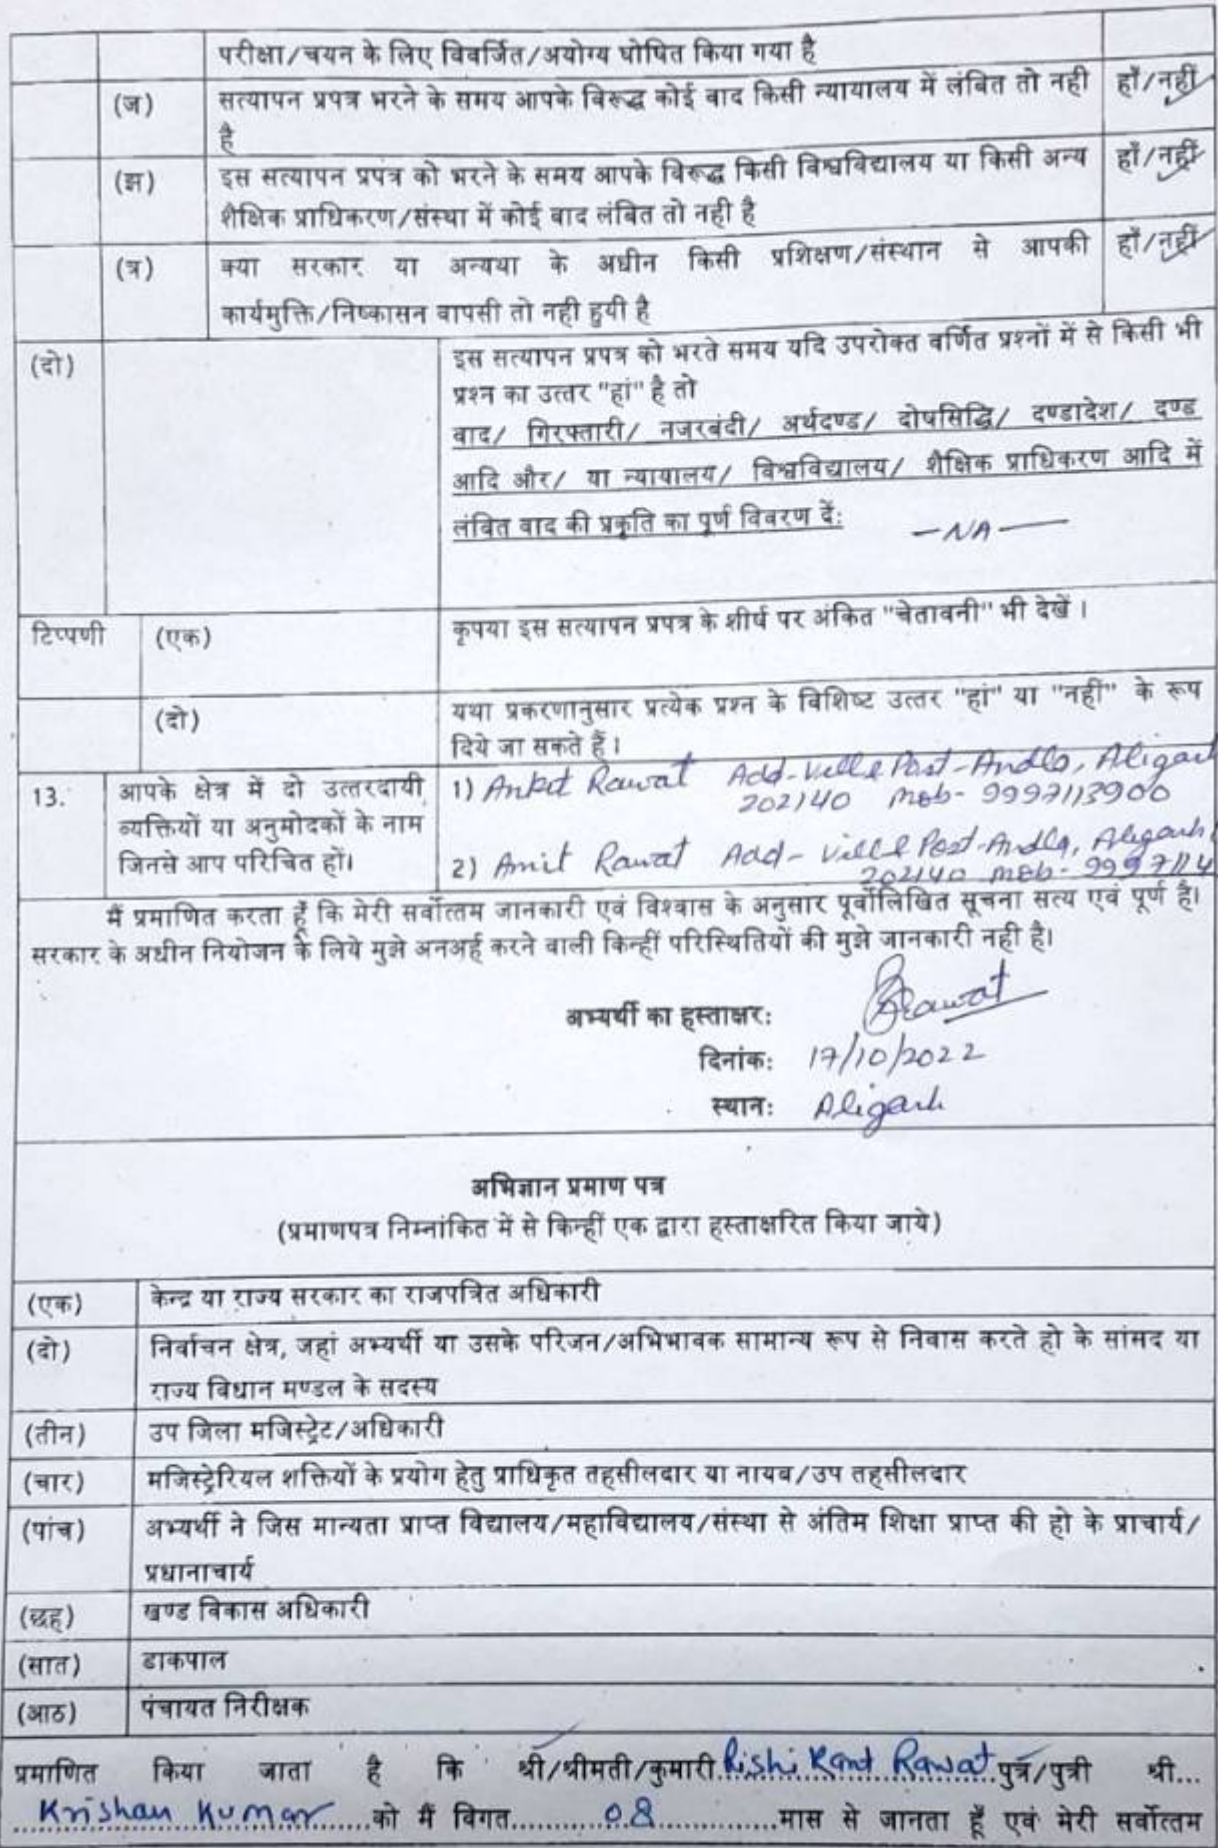 परीक्षा/चयन के लिए विवर्जित/अयोग्य घोषित किया गया है
(ज) सत्यापन प्रपत्र भरने के समय आपके विरूद्ध कोई वाद किसी न्यायालय में लंबित तो नही हाँ/नहीं
है
(झ) इस सत्यापन प्रपत्र को भरने के समय आपके विरूद्ध किसी विश्वविद्यालय या किसी अन्य हाँ/नहीं
शैक्षिक प्राधिकरण/संस्था में कोई वाद लंबित तो नही है
(त्र) क्या सरकार या अन्यथा के अधीन किसी प्रशिक्षण/संस्थान से आपकी हाँ/नहीं
कार्यमुक्ति/निष्कासन वापसी तो नही हुयी है
(दो) इस सत्यापन प्रपत्र को भरते समय यदि उपरोक्त वर्णित प्रश्नों में से किसी भी
प्रश्न का उत्तर "हां" है तो
वाद/ गिरफ्तारी/ नजरबंदी/ अर्थदण्ड/ दोषसिद्धि/ दण्डादेश/ दण्ड
आदि और/ या न्यायालय/ विश्वविद्यालय/ शैक्षिक प्राधिकरण आदि में
लंबित वाद की प्रकृति का पूर्ण विवरण दें: —NA—
टिप्पणी (एक) कृपया इस सत्यापन प्रपत्र के शीर्ष पर अंकित "चेतावनी" भी देखें ।
(दो) यथा प्रकरणानुसार प्रत्येक प्रश्न के विशिष्ट उत्तर "हां" या "नहीं" के रूप
दिये जा सकते हैं ।
13. आपके क्षेत्र में दो उत्तरदायी व्यक्तियों या अनुमोदकों के नाम जिनसे आप परिचित हों।
1) Ankit Rawat Add-Vill & Post-Andla, Aligarh
202140 mob- 9997113900
2) Amit Rawat Add- Vill & Post-Andla, Aligarh
202140 mob- 9997114
मैं प्रमाणित करता हूँ कि मेरी सर्वोत्तम जानकारी एवं विश्वास के अनुसार पूर्वोलिखित सूचना सत्य एवं पूर्ण है।
सरकार के अधीन नियोजन के लिये मुझे अनअर्ह करने वाली किन्हीं परिस्थितियों की मुझे जानकारी नही है।
अभ्यर्थी का हस्ताक्षर: Rawat
दिनांक: 17/10/2022
स्थान: Aligarh
अभिज्ञान प्रमाण पत्र
(प्रमाणपत्र निम्नांकित में से किन्हीं एक द्वारा हस्ताक्षरित किया जाये)
(एक) केन्द्र या राज्य सरकार का राजपत्रित अधिकारी
(दो) निर्वाचन क्षेत्र, जहां अभ्यर्थी या उसके परिजन/अभिभावक सामान्य रूप से निवास करते हो के सांमद या
राज्य विधान मण्डल के सदस्य
(तीन) उप जिला मजिस्ट्रेट/अधिकारी
(चार) मजिस्ट्रेरियल शक्तियों के प्रयोग हेतु प्राधिकृत तहसीलदार या नायब/उप तहसीलदार
(पांच) अभ्यर्थी ने जिस मान्यता प्राप्त विद्यालय/महाविद्यालय/संस्था से अंतिम शिक्षा प्राप्त की हो के प्राचार्य/
प्रधानाचार्य
(छह) खण्ड विकास अधिकारी
(सात) डाकपाल
(आठ) पंचायत निरीक्षक
प्रमाणित किया जाता है कि श्री/श्रीमती/कुमारी Rishi Kant Rawat पुत्र/पुत्री श्री...
Krishan Kumar को मैं विगत 08 मास से जानता हूँ एवं मेरी सर्वोत्तम